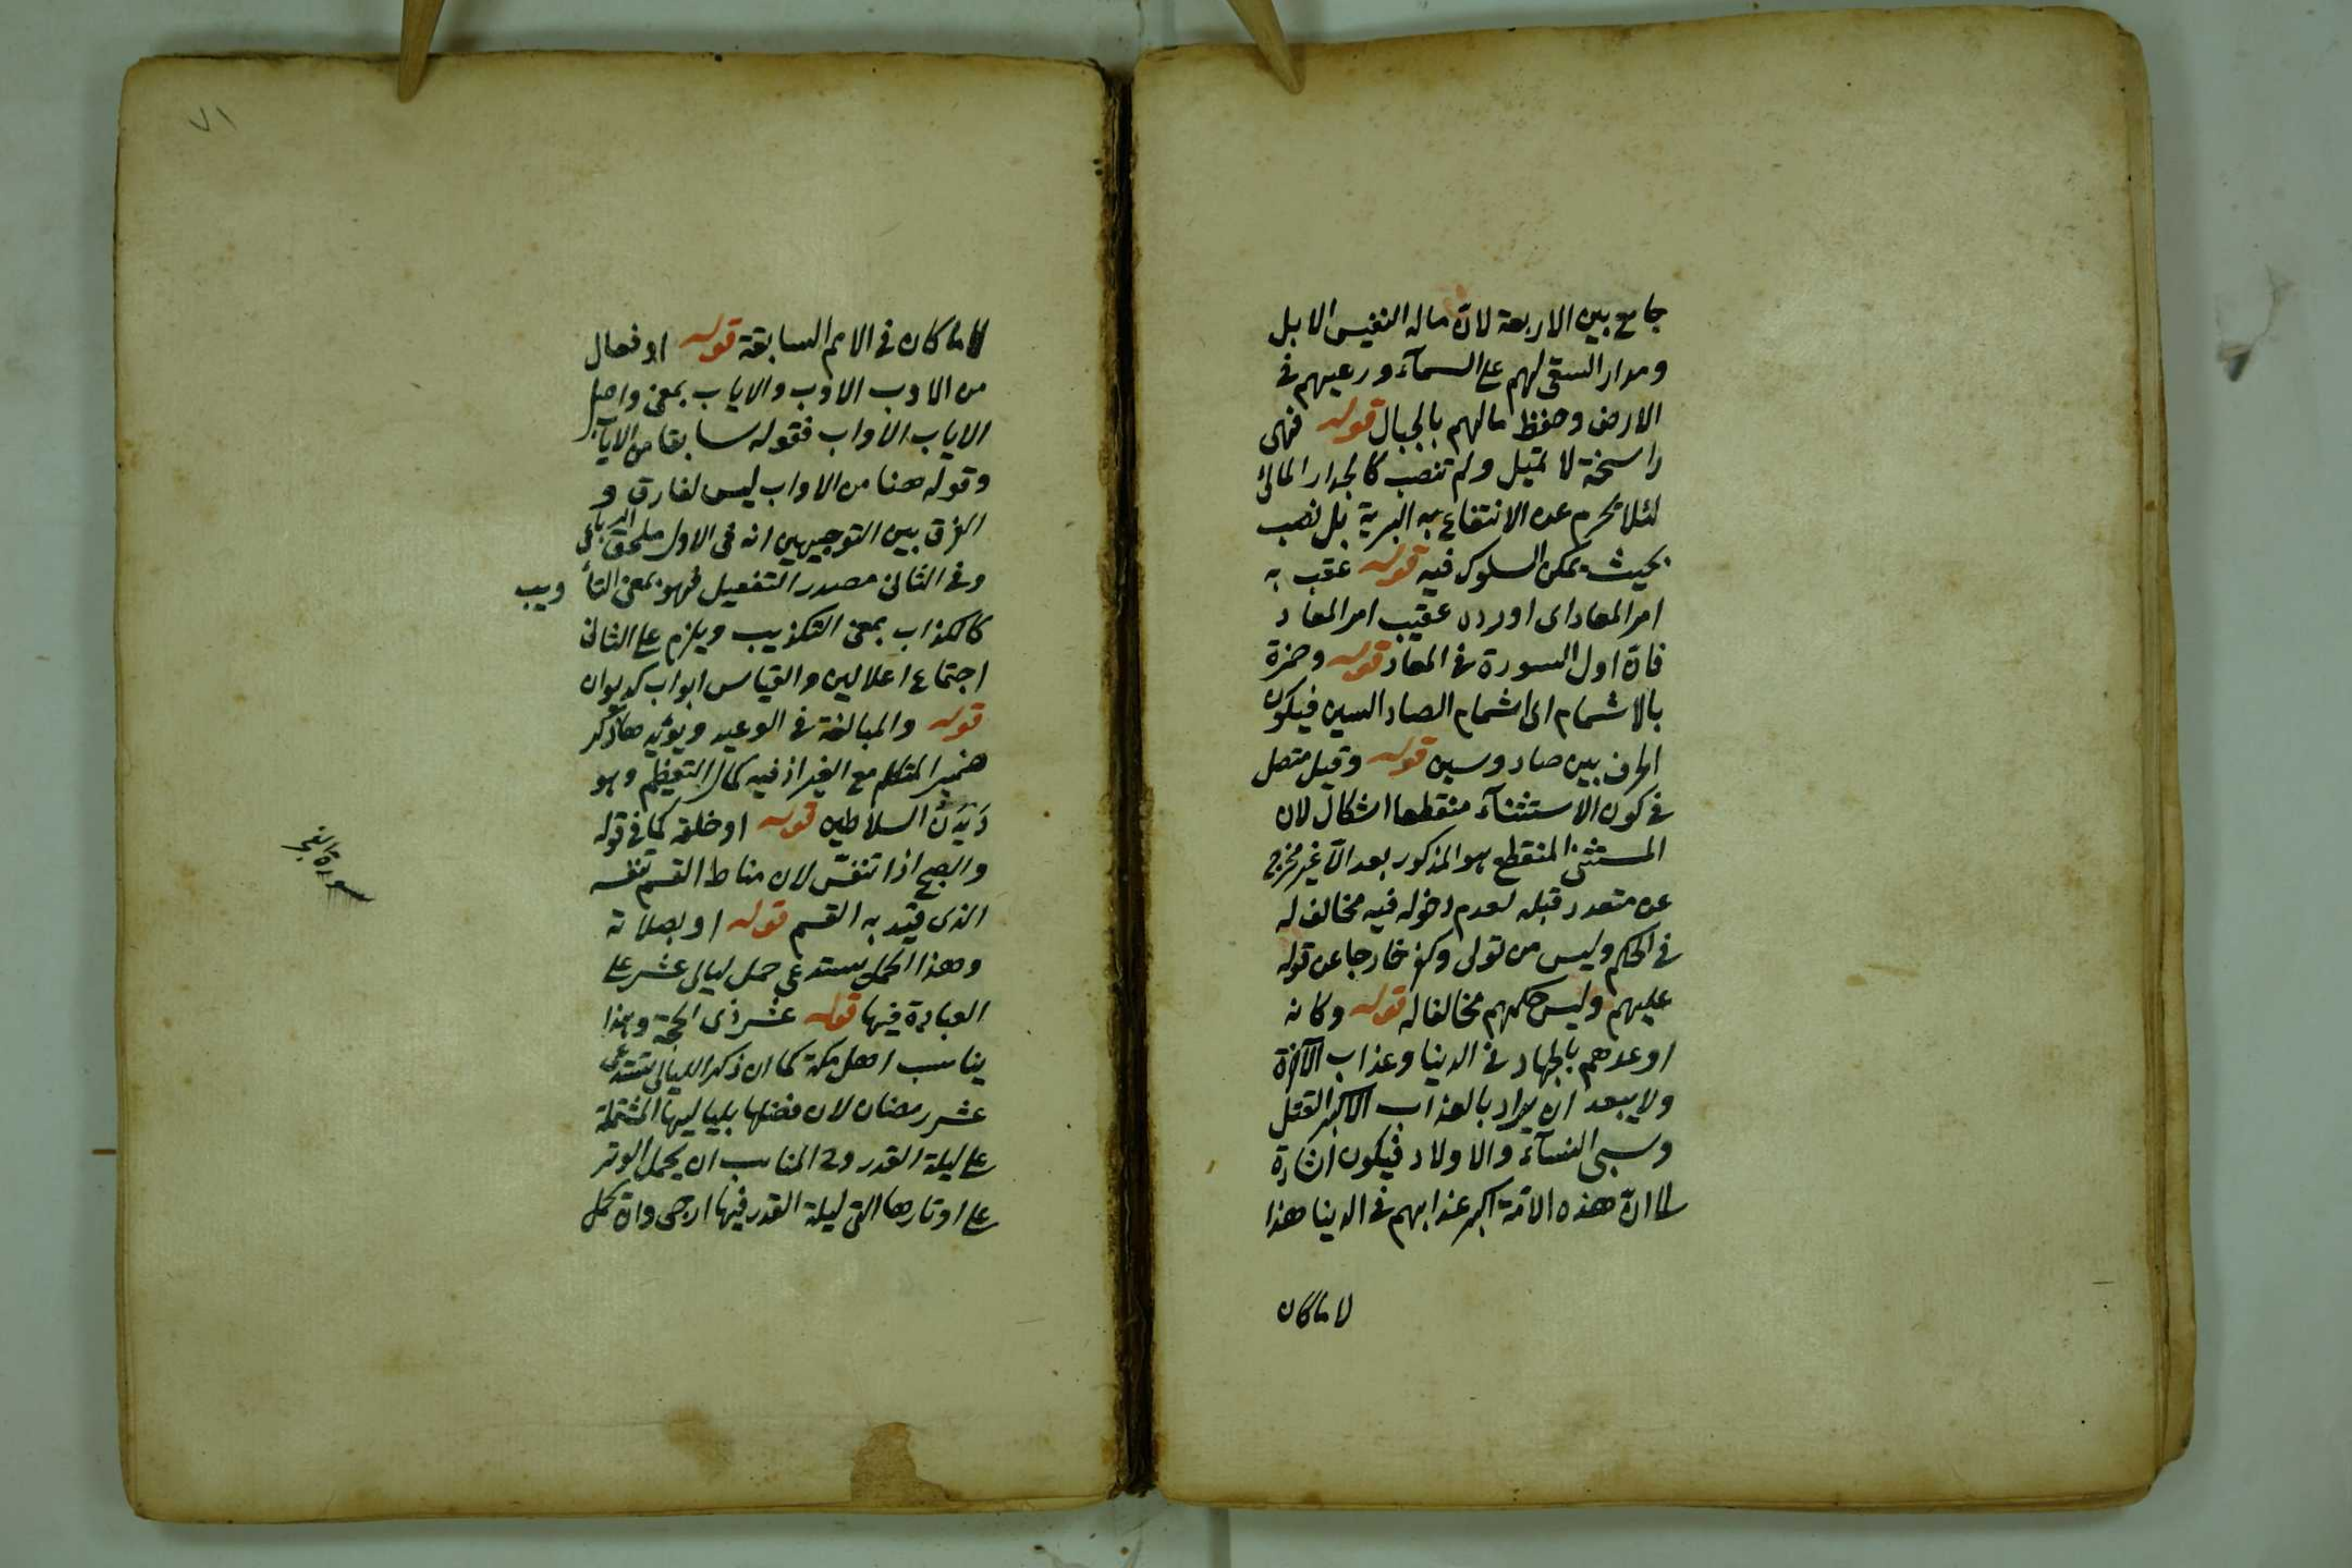 جامع بين الاربعة لانّ ماله النفيس الابل
ومدار السقى لهم على السمآء ورعيهم فى
الارض وحفظ مالهم بالجبال قوله فهى
راسخة لا تميل ولم تنصب كالجدار المائل
لئلا يحرم عن الانتفاع به البرية بل نصب
بحيث يمكن السلوك فيه قوله عقب به
امر المعاد اى اورده عقيب امر المعاد
فانّ اول السورة فى المعاد قوله وحمزة
بالاشمام اى اشمام الصاد السين فيكون
الحرف بين صاد وسين قوله وقيل متصل
فى كون الاستثنآء منقطعا اشكال لان
المستثنى المنقطع هو المذكور بعد الّا غير مخرج
عن متعدد قبله لعدم دخوله فيه مخالف له
فى الحكم وليس من تولى وكفر خارجا عن قوله
عليهم وليس حكمهم مخالفا له قوله وكانه
اوعدهم بالجهاد فى الدنيا وعذاب الآخرة
ولا يبعد ان يراد بالعذاب الاكبر القتل
وسبى النسآء والاولاد فيكون اشارة
الى انّ هذه الامّة اكبر عذابهم فى الدنيا هذا
لا ما كان
٧١
لا ما كان فى الامم السابقة قوله او فعال
من الاوب الاوب والاياب بمعنى واصل
الاياب الاواب فقوله سابقا من الاياب
وقوله هنا من الاواب ليس لفارق و
الفرق بين التوجيهين انه فى الاول ملحق بالرباعى
وفى الثانى مصدر التفعيل فهو بمعنى التأويب
كالكذاب بمعنى التكذيب ويلزم على الثانى
اجتماع اعلالين والقياس ابواب كديوان
قوله والمبالغة فى الوعيد ويؤيدها ذكر
ضمير المتكلم مع الغير اذ فيه كمال التعظيم وهو
دَيدَن السلاطين قوله او خلقه كما فى قوله
والصبح اذا تنفّس لان مناط القسم تنفسه
الذى قيّد به القسم قوله او بصلاته
وهذا الحمل يستدعى حمل ليال عشر على
العبادة فيها قوله عشر ذى الحجة وهذا
يناسب اهل مكة كما ان ذكر الليالى يستدعى
عشر رمضان لان فضلها بلياليها المشتملة
على ليلة القدر وح المناسب ان يحمل الوتر
على اوتارها التى ليلة القدر فيها ارجى وان يحمل
سورة الفجر